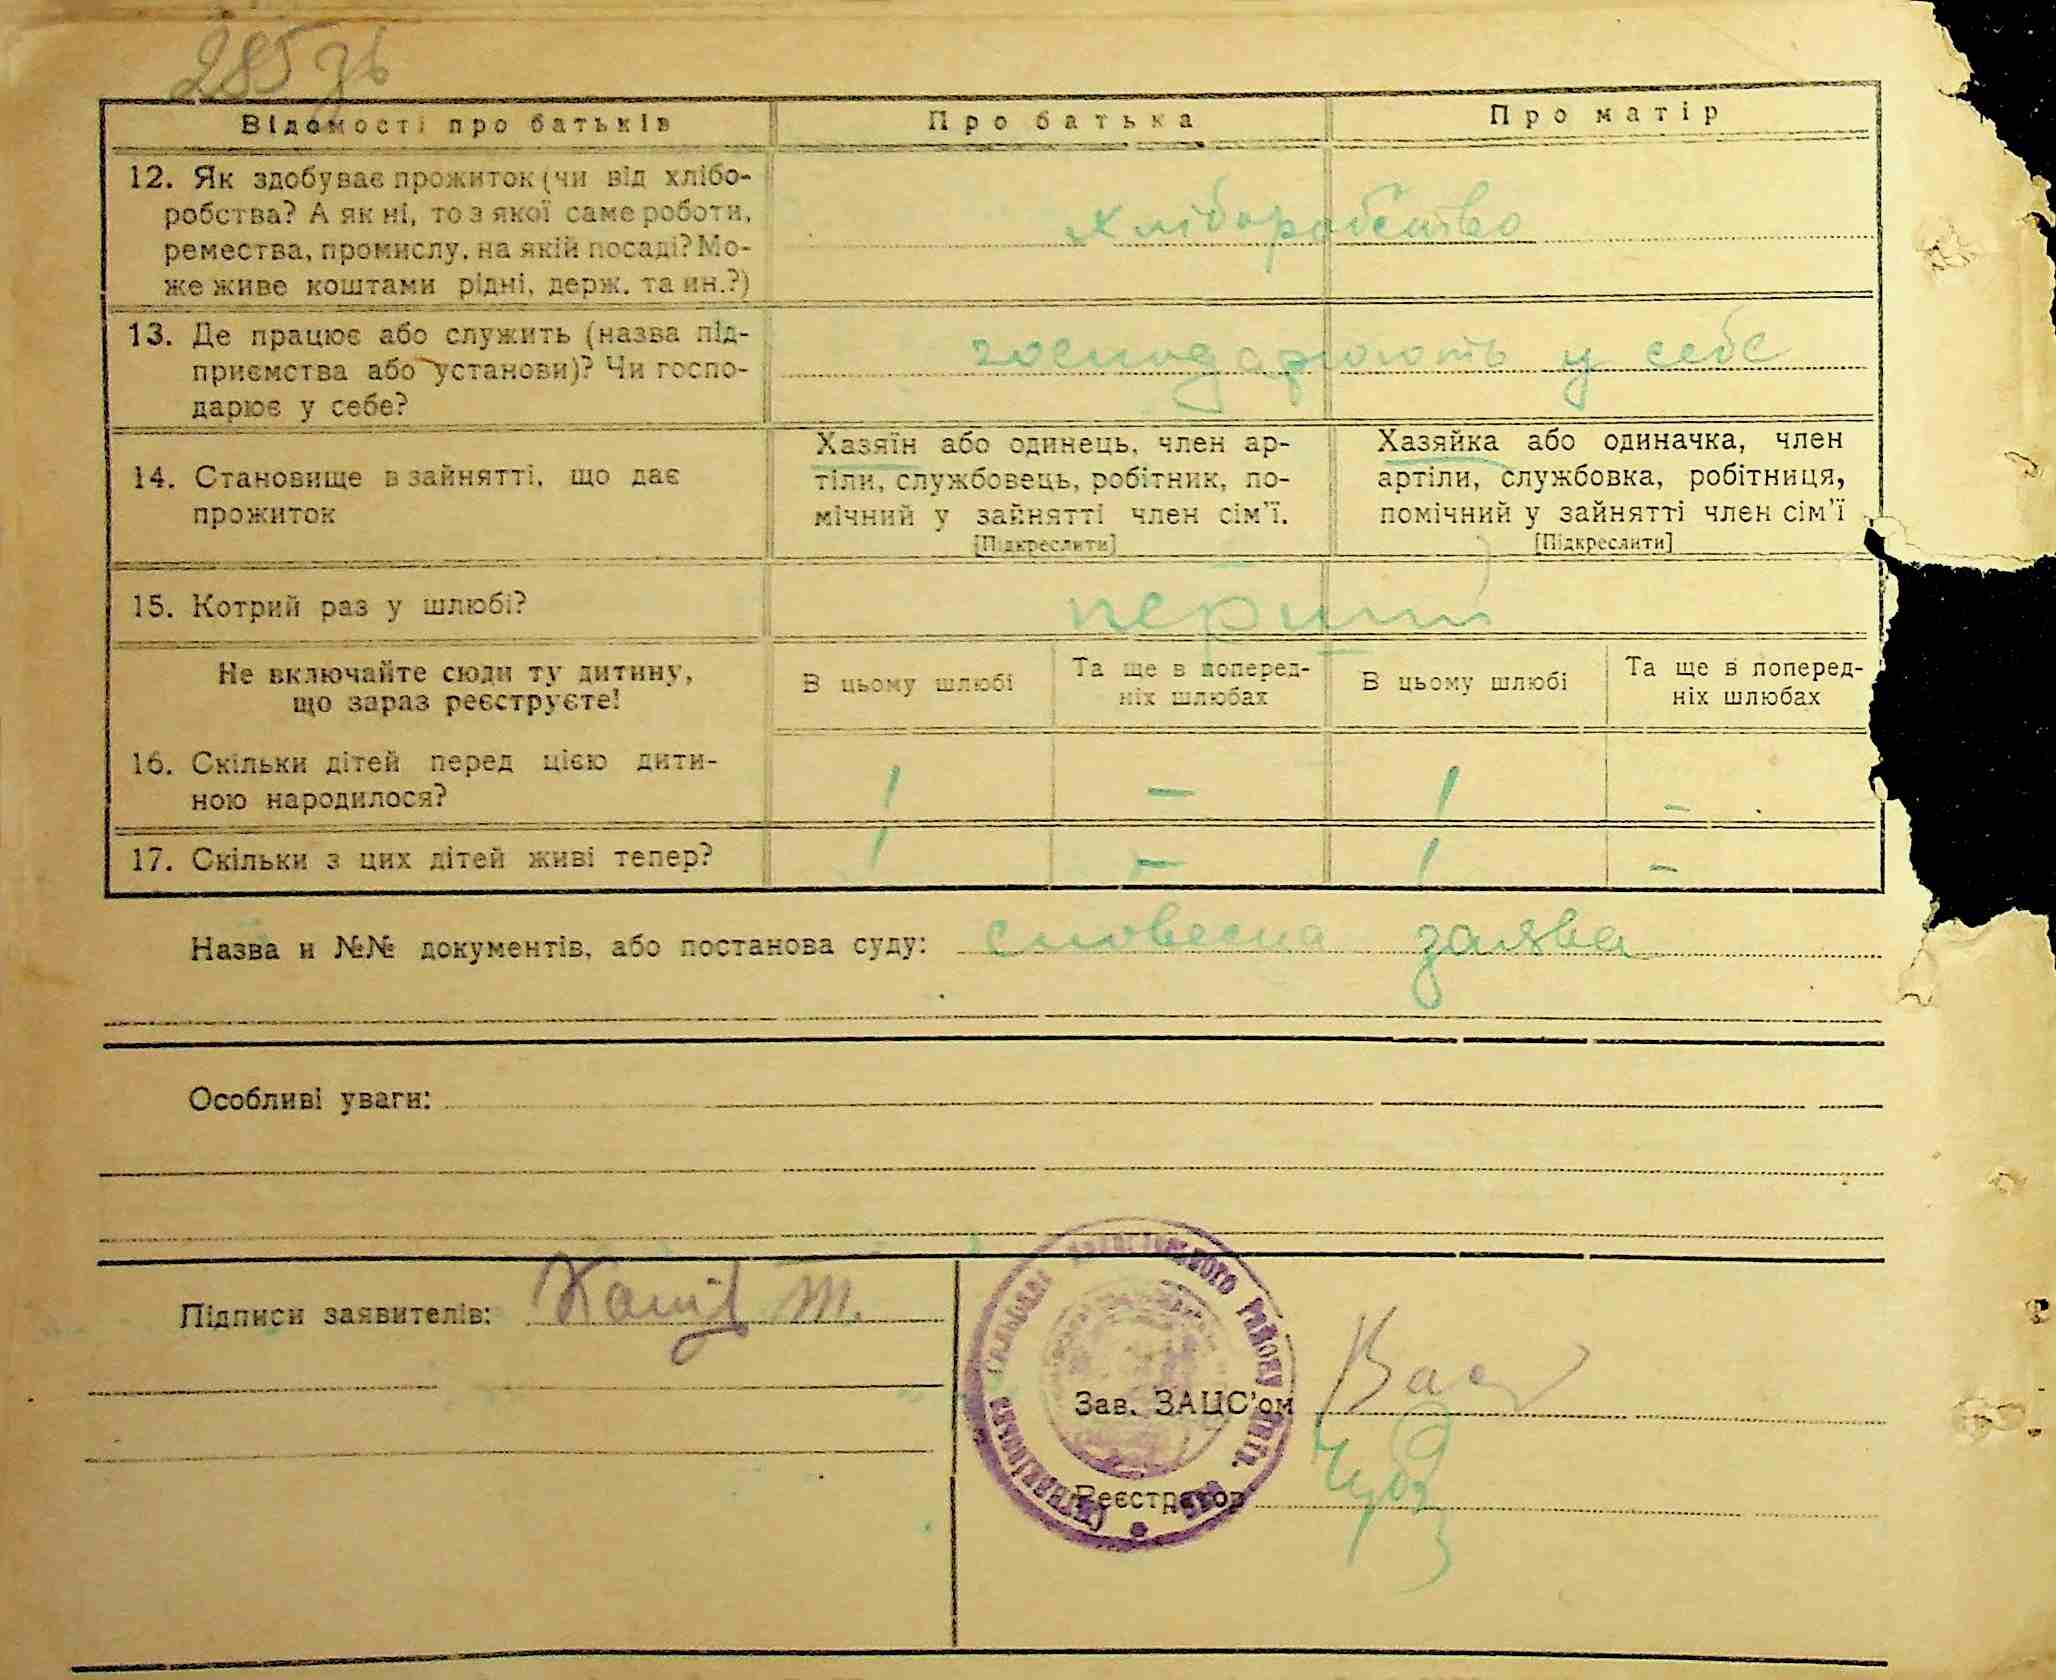 285 зв
Відомості про батьків
Про батька
Про матір
12. Як здобуває прожиток (чи від хлібо-
робства? А як ні, то з якої саме роботи,
ремества, промислу, на якій посаді? Мо-
же живе коштами рідні, держ. та ин.?)
хліборобство
13. Де працює або служить (назва під-
приємства або установи)? Чи госпо-
дарює у себе?
господарюють у себе
14. Становище в зайнятті, що дає
прожиток
Хазяїн або одинець, член ар-
тіли, службовець, робітник, по-
мічний у зайнятті член сім'ї.
[Підкреслити]
Хазяйка або одиначка, член
артіли, службовка, робітниця,
помічний у зайнятті член сім'ї
[Підкреслити]
15. Котрий раз у шлюбі?
перший
Не включайте сюди ту дитину,
що зараз реєструєте!
В цьому шлюбі
Та ще в поперед-
ніх шлюбах
В цьому шлюбі
Та ще в поперед-
ніх шлюбах
16. Скільки дітей перед цією дити-
ною народилося?
1 – 1 –
17. Скільки з цих дітей живі тепер?
1 – 1 –
Назва и №№ документів, або постанова суду: словесна заява
Особливі уваги:
Підписи заявителів:
Зав. ЗАЦС'ом
Реєстратор
району